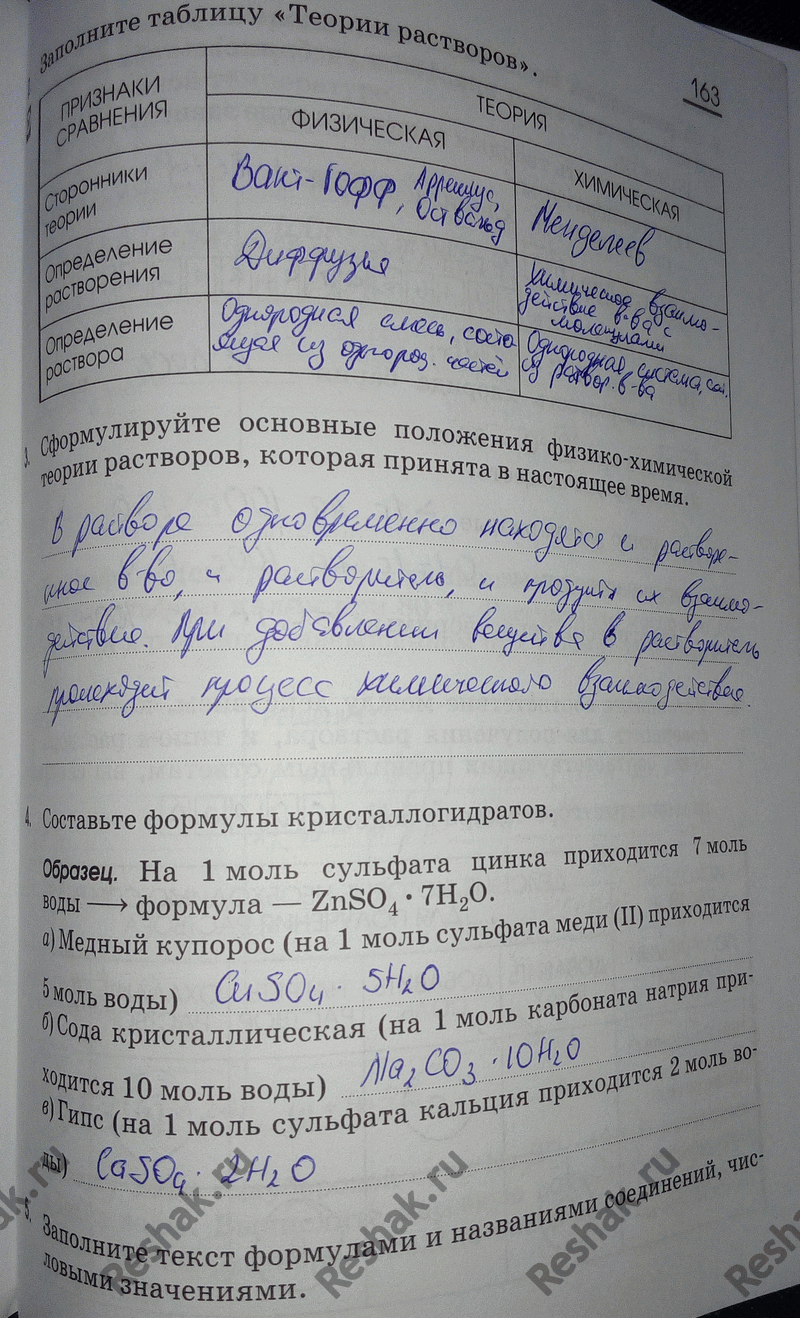 Заполните таблицу «Теории растворов».
163
ПРИЗНАКИ СРАВНЕНИЯ
ТЕОРИЯ
ФИЗИЧЕСКАЯ
ХИМИЧЕСКАЯ
Сторонники
теории
Вант-Гофф, Аррениус,
Оствальд
Менделеев
Определение
растворения
Диффузия
Химическое взаимо-
действие в-ва с
молекулами
Определение
раствора
Однородная смесь, состо
ящая из однород. частей
Однородная система, сост.
из раствор. в-ва
3. Сформулируйте основные положения физико-химической
теории растворов, которая принята в настоящее время.
В растворе одновременно находятся и растворе-
нное в-во, и растворитель, и продукты их взаимо-
действие. При добавлении вещества в растворитель
происходит процесс химического взаимодействие.
4. Составьте формулы кристаллогидратов.
Образец. На 1 моль сульфата цинка приходится 7 моль
воды ⟶ формула — ZnSO₄ • 7H₂O.
а) Медный купорос (на 1 моль сульфата меди (II) приходится
5 моль воды) CuSO₄ · 5H₂O
б) Сода кристаллическая (на 1 моль карбоната натрия при-
ходится 10 моль воды) Na₂CO₃ · 10H₂O
в) Гипс (на 1 моль сульфата кальция приходится 2 моль во-
ды) CaSO₄ · 2H₂O
5. Заполните текст формулами и названиями соединений, чис-
ловыми значениями.
Reshak.ru
Reshak.ru
Reshak.ru